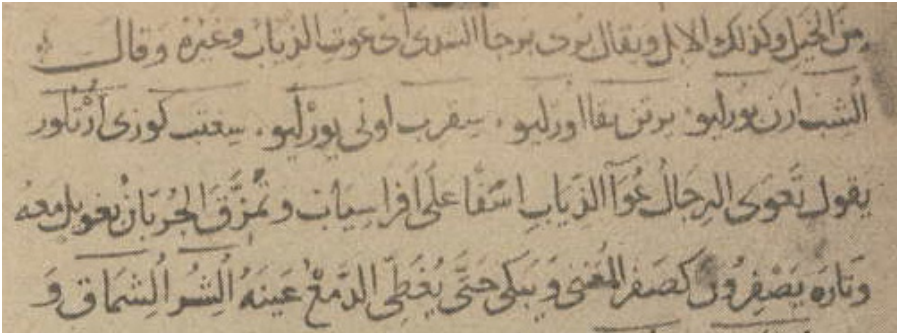 من الخيل وكذلك الابل ويقال بُرى برجا اُلشدى اى عوت الذياب وغيره وقال
اُلشب ارن بورلیو یرتن یقا اورلیو سقرب اونی یورلیو سغتب کوزی اُرْتلور
يقول تَعوى الرجال عُوَآ الذِيابِ اسَفًا علَى اَفراسياب وتُمزَّق الجُربَان بعويل معه
وتارة يَصْفِرُونَ كصَفر المغنى ويبكى حتى يُغطّى الدَمْعُ عَينَهُ اُلشُر اُلشماق و